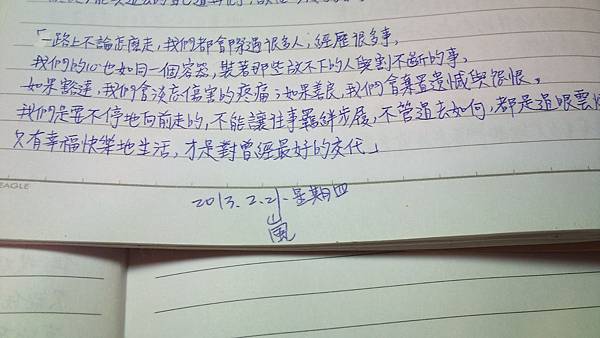 「一路上不論怎麼走，我們都會際遇很多人；經歷很多事，
我們的心也如同一個容器，裝著那些放不下的人與割不斷的事。
如果豁達，我們會淡忘傷害的疼痛；如果善良，我們會棄置遺憾與怨恨。
我們是要不停地向前走的，不能讓往事羈絆步履，不管過去如何，都是過眼雲
只有幸福快樂地生活，才是對曾經最好的交代」
EAGLE
2013.2.21.星期四
嵐